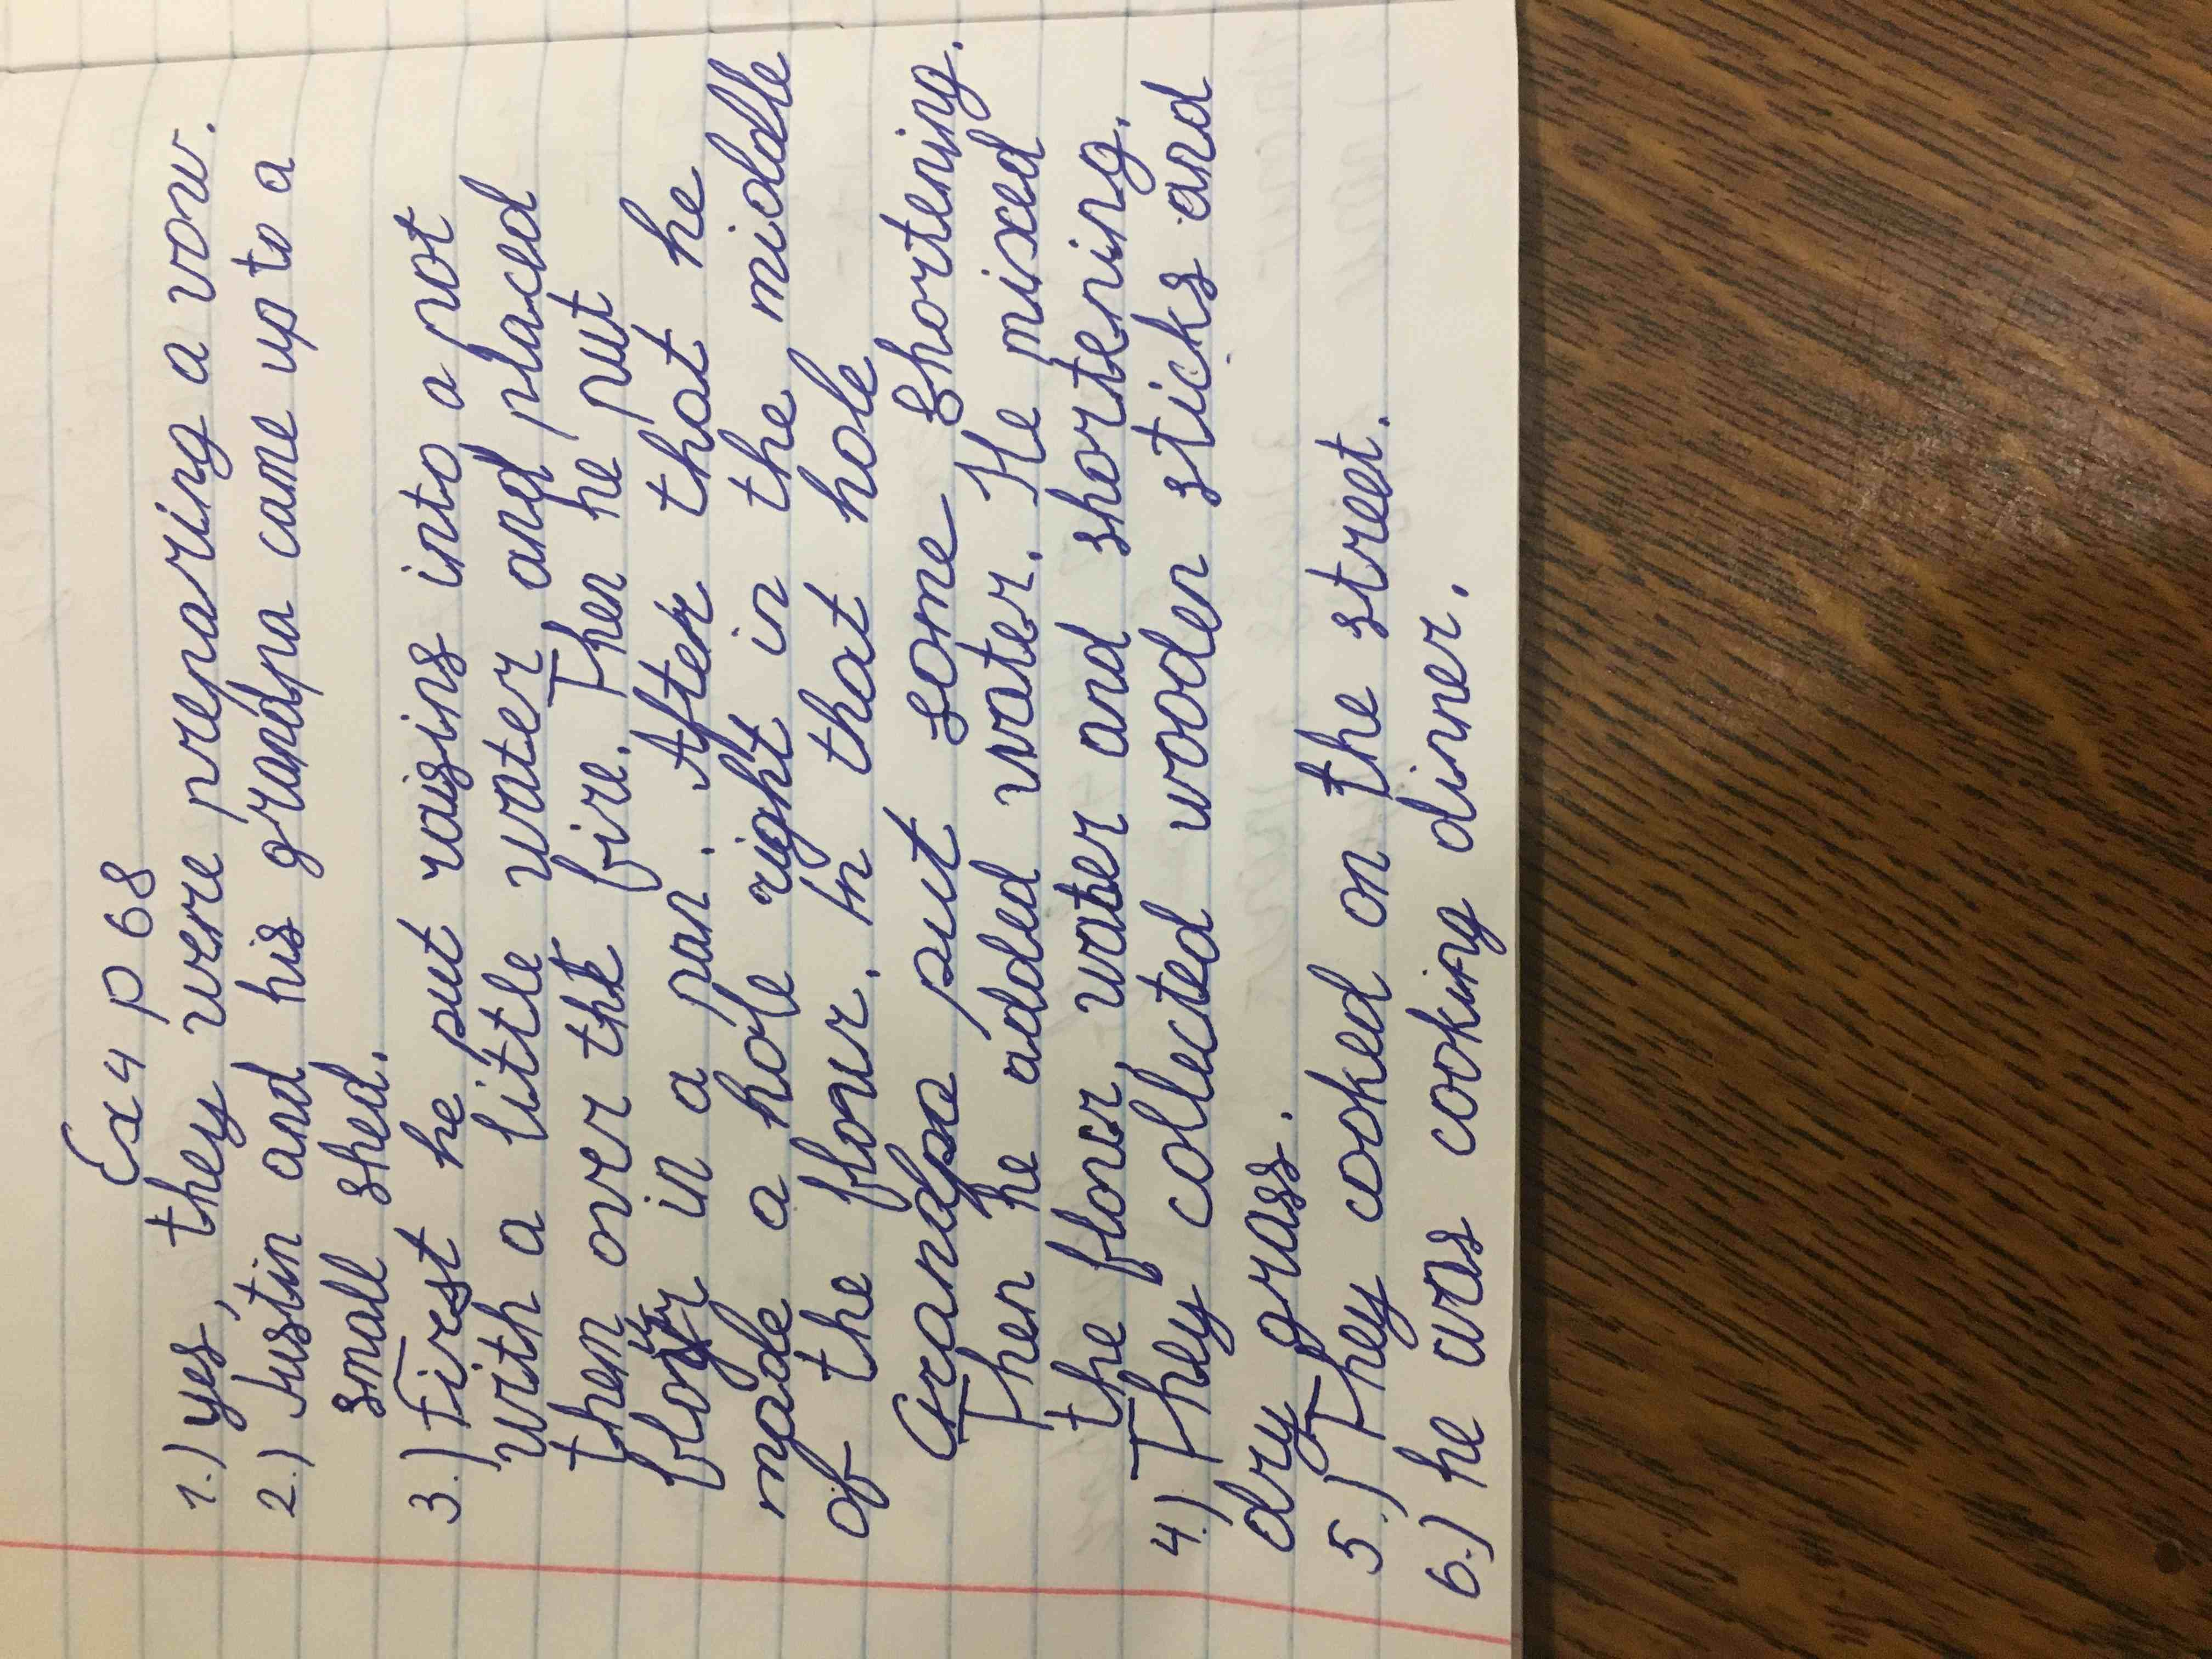 Ex 4 p 68
1.) yes, they were preparing a vow.
2.) Justin and his grandpa came up to a
small shed.
3.) First he put raisins into a pot
with a little water and placed
then over the fire. Then he put
flour in a pan. After that he
made a hole right in the middle
of the flour. In that hole
Grandpa put some shortening.
Then he added water. He mixed
the flour, water and shortening.
4.) They collected wooden sticks and
dry grass.
5.) They cooked on the street.
6.) he was cooking dinner.